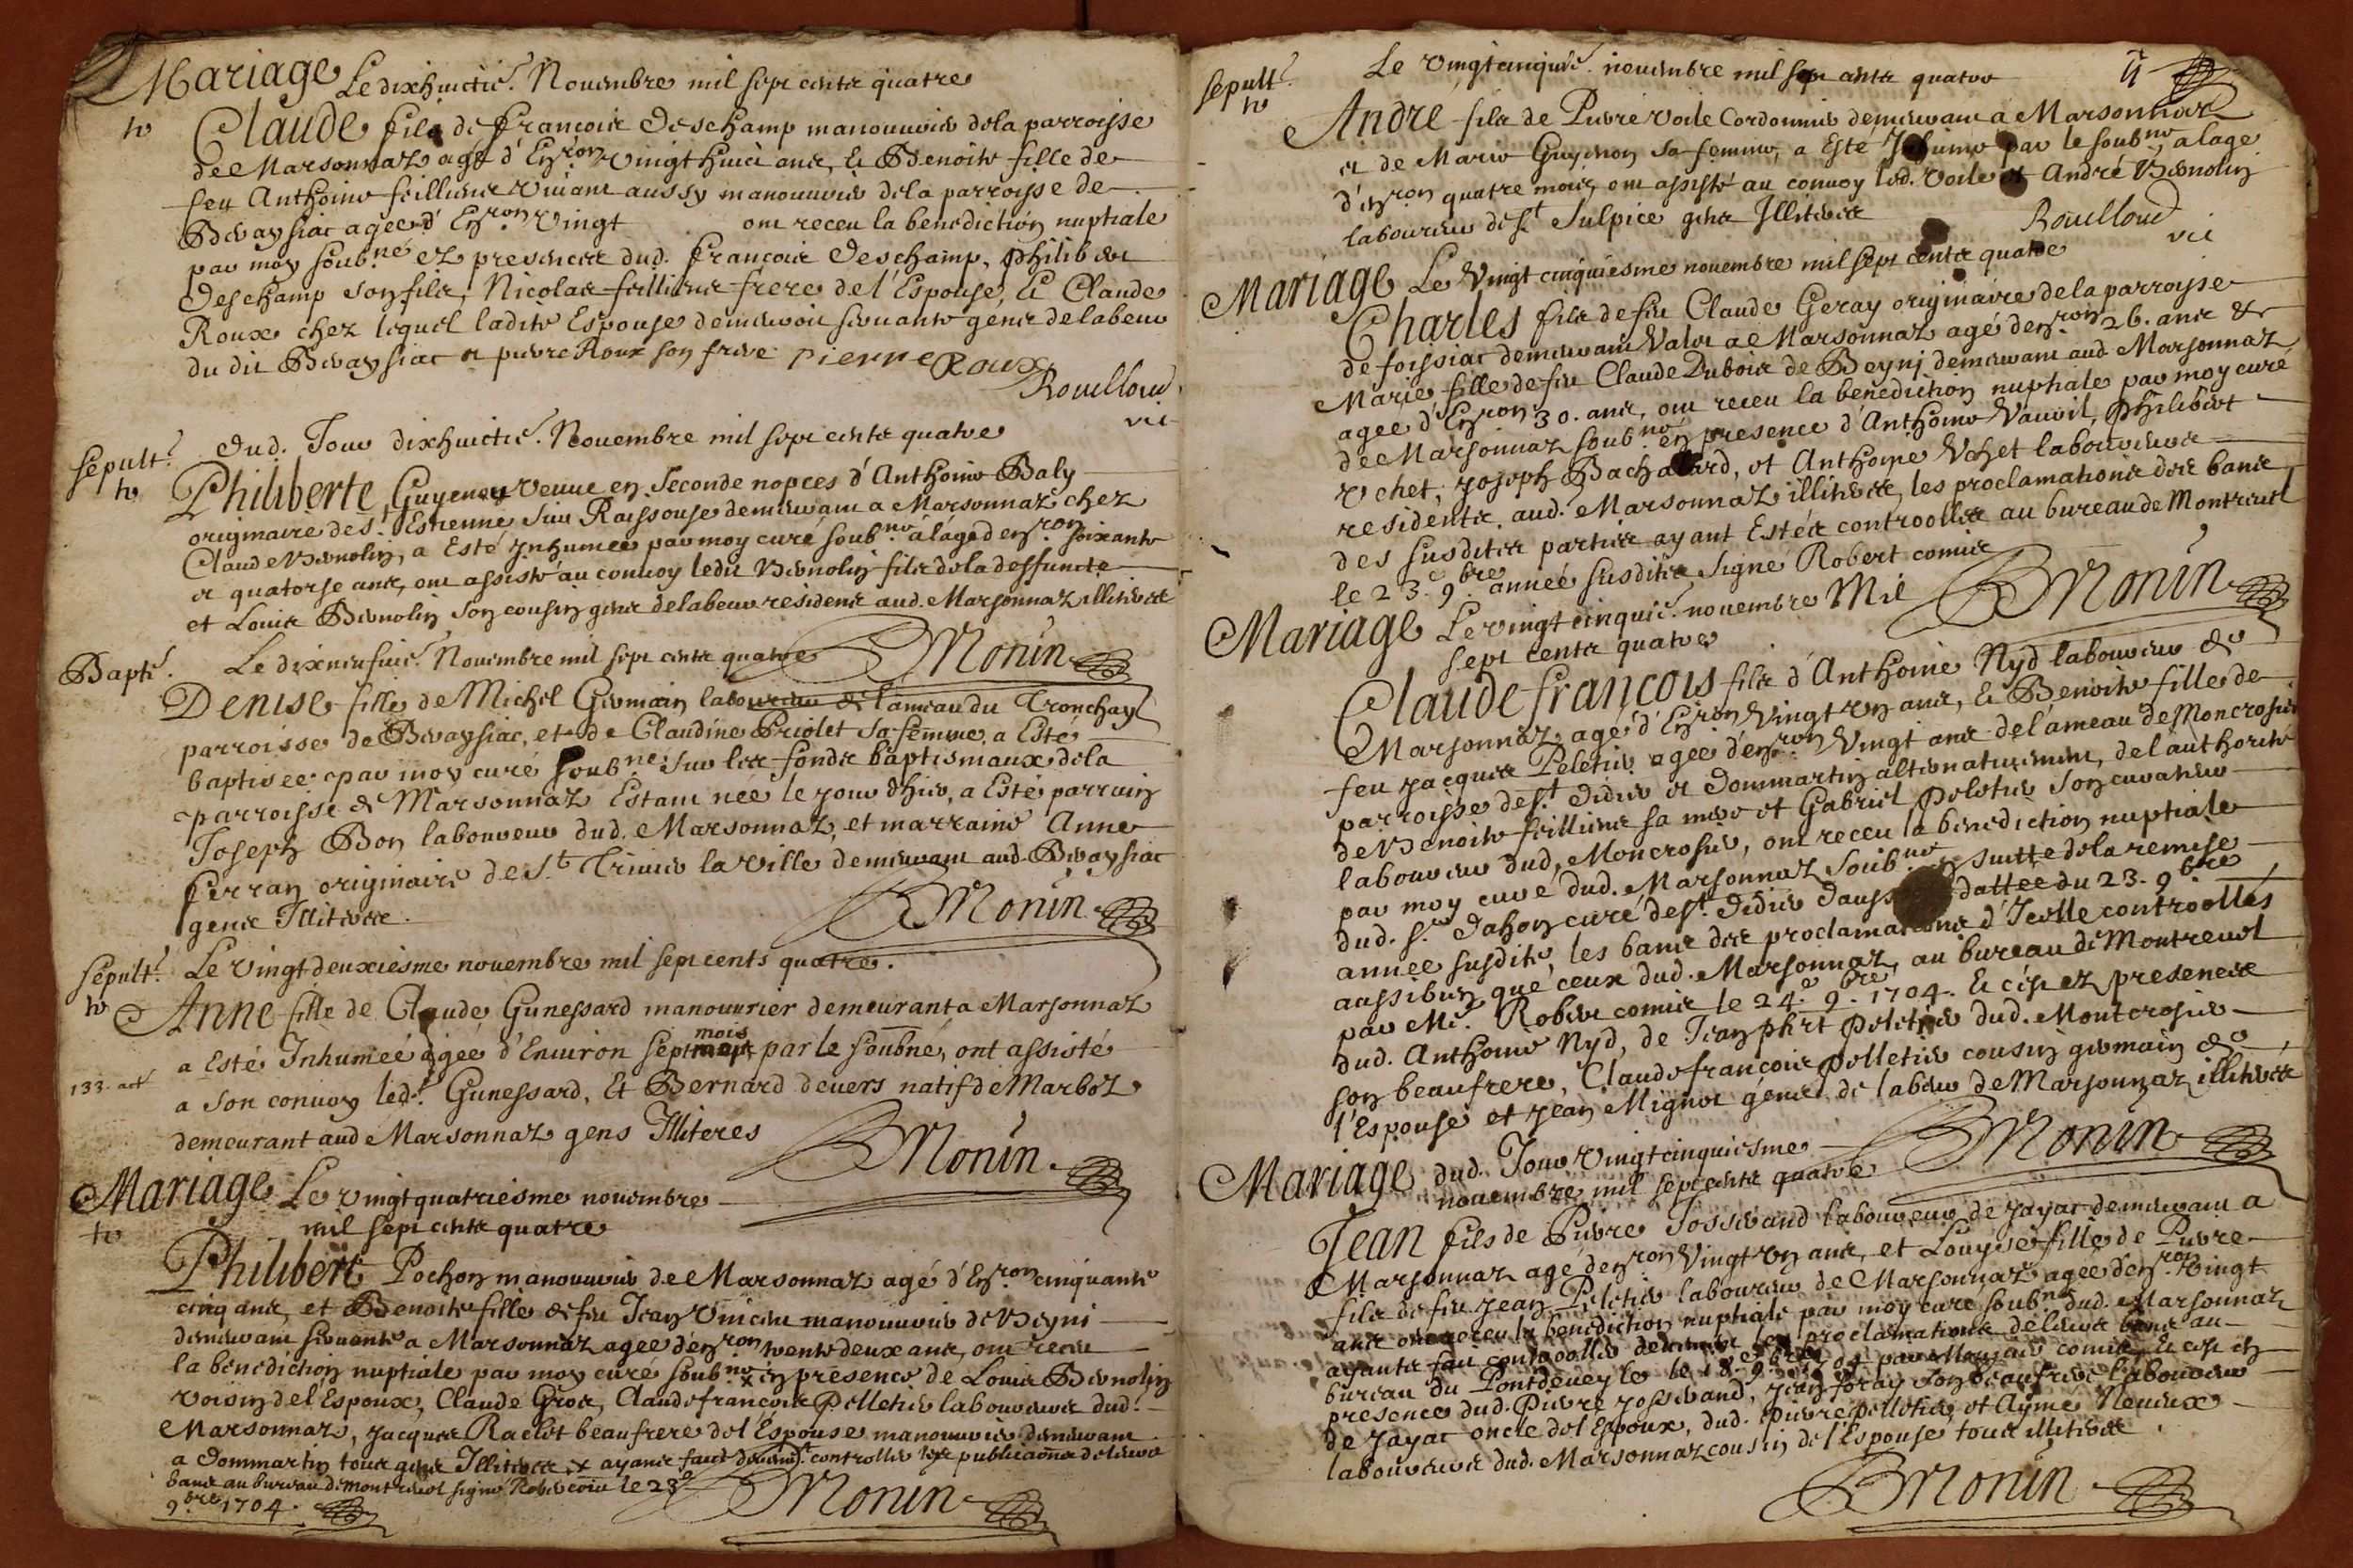 Mariage Le dixhuictie. Nouembre mil sept cents quatre
Claude fils de François Deschamp manouurier dela parroisse
de Marsonnaz agé d'Enron vingt huict ans, Et Benoite fille de
feu Anthoine feilliens viuant aussy manouurier dela parroisse de
Beuaysiat agee d'Enron vingt ont receu la benediction nuptiale
par moy soubné ez presences dud. François Deschamp, Philibert
Deschamp son fils, Nicolas feilliens frere de l'Espouse, Et Claude
Roux chez lequel ladite Espouse demeuroit seruante gens delabeur
du dit Beuaysiat et pierre Roux son frere Pierre Roux
Rouilloud
vic
sepult. Dud. Jour dixhuictie. Nouembre mil sept cents quatre
Philiberte Guyenon veuue en seconde nopces d'Anthoine Baly
originaire de st Estienne sur Raissouse demeurant a Marsonnaz chez
Claude Bernolin, a Esté Inhumee par moy curé soubné a láge denron soixante
et quatorse ans, ont assisté au conuoy ledit Bernolin fils dela deffuncte
et Louis Bernolin son cousin gens delabeur residents aud. Marsonnaz illiteres
BMonin
Bapte. Le dixneufuie. Nouembre mil sept cents quatre
Denise fille de Michel Germain laboureur de lameau du Tronchay
parroisse de Beuaysiac, et de Claudine Priolet sa femme, a Esté
baptisee par moy curé soubné sur les fonds baptismaux dela
parroisse de Marsonnaz Estant née le jour d'hier, a Esté parrain
Joseph Bon laboureur dud. Marsonnaz, et marraine Anne
ferran originaire de St. Triuier la ville demeurant aud. Beuaysiat
gens Illiteres.
BMonin
sepult. Le vingtdeuxiesme nouembre mil sept cents quatre.
Anne fille de Claude Gunessard manouurier demeurant a Marsonnaz
mois
a Esté Inhumeé agée d'Enuiron sept par le soubné, ont assisté
133. act
a son conuoy led. Gunessard, Et Bernard deuers natif de Marboz
demeurant aud Marsonnaz gens Illiteres
BMonin
Mariage Le vingtquatriesme nouembre
mil sept cents quatre
Philibert Pochon manouurier de Marsonnaz agé d'Enron cinquante
cinq ans, et Benoite fille de feu Jean Vincent manouurier de Beyni
demeurant seruante a Marsonnaz agee d'enron trente deux ans, ont receu
la benediction nuptiale par moy curé soubné x en presence de Louis Bernolin
voisin del Espoux, Claude Gros, Claudefrançois Pelletier laboureurs dud.
Marsonnaz, Jacques Raclet beaufrere del Espouse manouurier demeurant
a Dommartin tous gens Illiteres x ayants faict controller les publicaons de leurs
bans au bureau de montreuel signé Robert comis le 23e
9bre 1704.
BMonin
Le vingtcinquie. nouembre mil sept cents quatre
sepult.
André fils de Pierre Voile Cordonnier demeurant a Marsonnaz
et de Marie Guyenon sa femme, a Esté Inhumé par le soubné, a láge
d'enron quatre mois, ont assisté au conuoy led. Voile et André Bernolin
laboureur de st Sulpice gens Illiteres
Rouilloud
vic
Mariage Le Vingt cinquiesme nouembre mil sept cents quatre
Charles fils de feu Claude Geray originaire de la parroisse
de foissiat demeurant Valet a Marsonnaz agé denron 26. ans &
Marie fille de feu Claude Dubois de Beyni demeurant aud Marsonnaz
agee d'Enron 30. ans, ont receu la benediction nuptiale par moy curé
de Marsonnaz soubné en presence d'Anthoine Vauoil, Philibert
Vchet, Joseph Bachalard, et Anthoine Vchet laboureurs
residents aud. Marsonnaz illiteres, les proclamations des bans
des susdites parties ayant Estées controollés au bureau de Montreuel
le 23e 9bre année susdite, signé Robert comis
BMonin
Mariage Le vingtcinquie. nouembre Mil
sept cents quatre
Claude françois fils d'Anthoine Nyd laboureur de
Marsonnaz agé d'Enron Vingt vn ans, Et Benoite fille de
feu Jacques Peletier agee d'enron Vingt ans de l'ameau de Moncrosier
parroisse de st Didier et Dommartin alternatiuement, de l'authorité
de Benoite feilliens sa mere et Gabriel Peletier son curateur
laboureur dud. Moncrosier, ont receu la benediction nuptiale
par moy curé dud. Marsonnaz soubné en suitte dela remise
dud. sr Dahon curé de st Didier dattee du 23. 9bre
annee susdite, les bans des proclamations d'Icelle controollés
aussibien que ceux dud. Marsonnaz, au bureau de Montreuel
par Me. Robert comis le 24e 9bre 1704. Et c'est ez presences
dud. Anthoine Nyd, de Jean phrt Peletier dud. Montcrosier
son beaufrere, Claudefrançois Pelletier cousin germain de
l'Espouse et Jean Mignot gens de labeur de Marsonnaz illiteres
BMonin
Mariage Dud. Jour vingtcinquiesme
nouembre mil sept cents quatre
Jean fils de Pierre Josserand laboureur de Jayat demeurant a
Marsonnaz agé denron Vingt vn ans, et Louyse fille de Pierre
fils de feu Jean Peletier laboureur de Marsonnaz agee denron vingt
ans ont receu la benediction nuptiale par moy curé soubné dud. Marsonnaz
ayants fait controoller les proclamations de leurs bans au
bureau du Pontdeueyle le 18e 9bre 1704 par comis, Et c'est en
presence dud. Pierre Josserand, Jean foray son beaufrere laboureur
de Jayat oncle del Espoux, dud. Pierre Pelletier, et Ayme Neuieux
laboureurs dud. Marsonnaz cousin de l'Espouse tous illiteres
BMonin